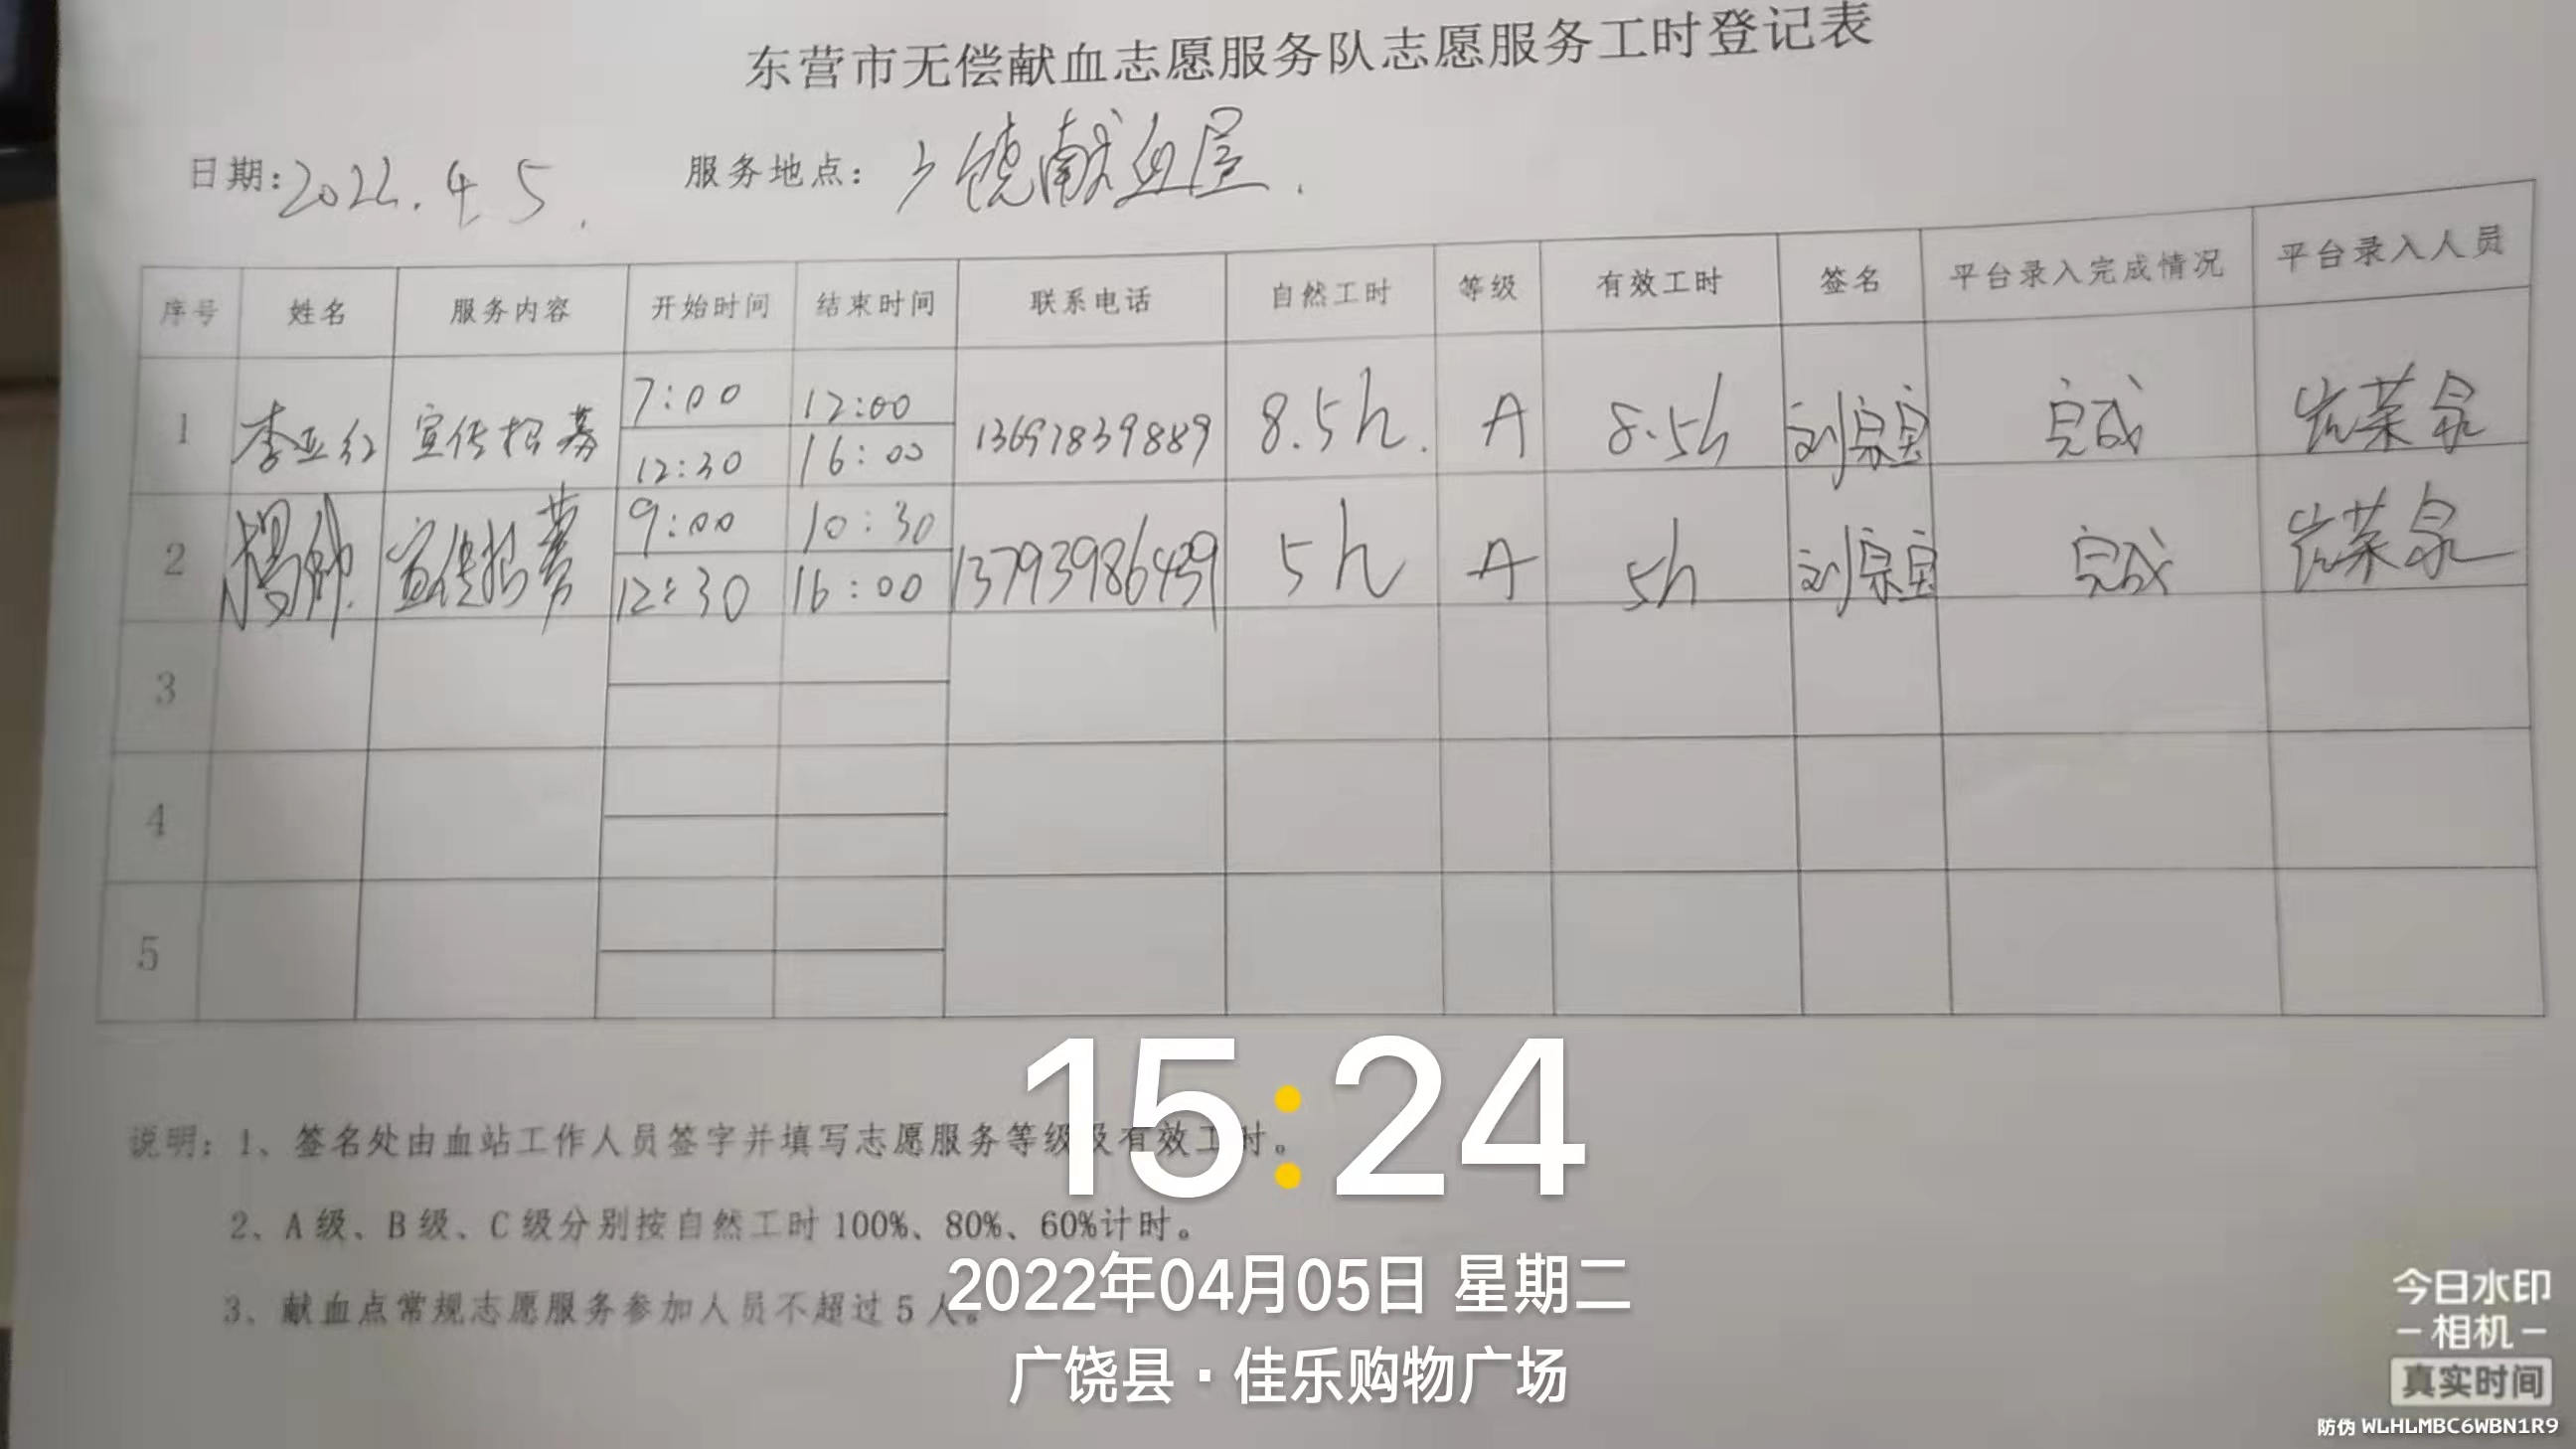 东营市无偿献血志愿服务队志愿服务工时登记表
日期: 2022.4.5. 服务地点: 广饶献血屋.
序号 姓名 服务内容 开始时间 结束时间 联系电话 自然工时 等级 有效工时 签名 平台录入完成情况 平台录入人员
7:00 12:00
1 李亚红 宣传招募 13697839889 8.5h. A 8.5h 刘宗宝 完成 荣泉
12:30 16:00
9:00 10:30
2 杨帅 宣传招募 13793986439 5h A 5h 刘宗宝 完成 荣泉
12:30 16:00
3
4
5
说明: 1、签名处由血站工作人员签字并填写志愿服务等级及有效工时。
2、A级、B级、C级分别按自然工时100%、80%、60%计时。
3、献血点常规志愿服务参加人员不超过5人。
15:24
2022年04月05日 星期二
广饶县·佳乐购物广场
今日水印
-相机-
真实时间
防伪 WLHLMBC6WBN1R9